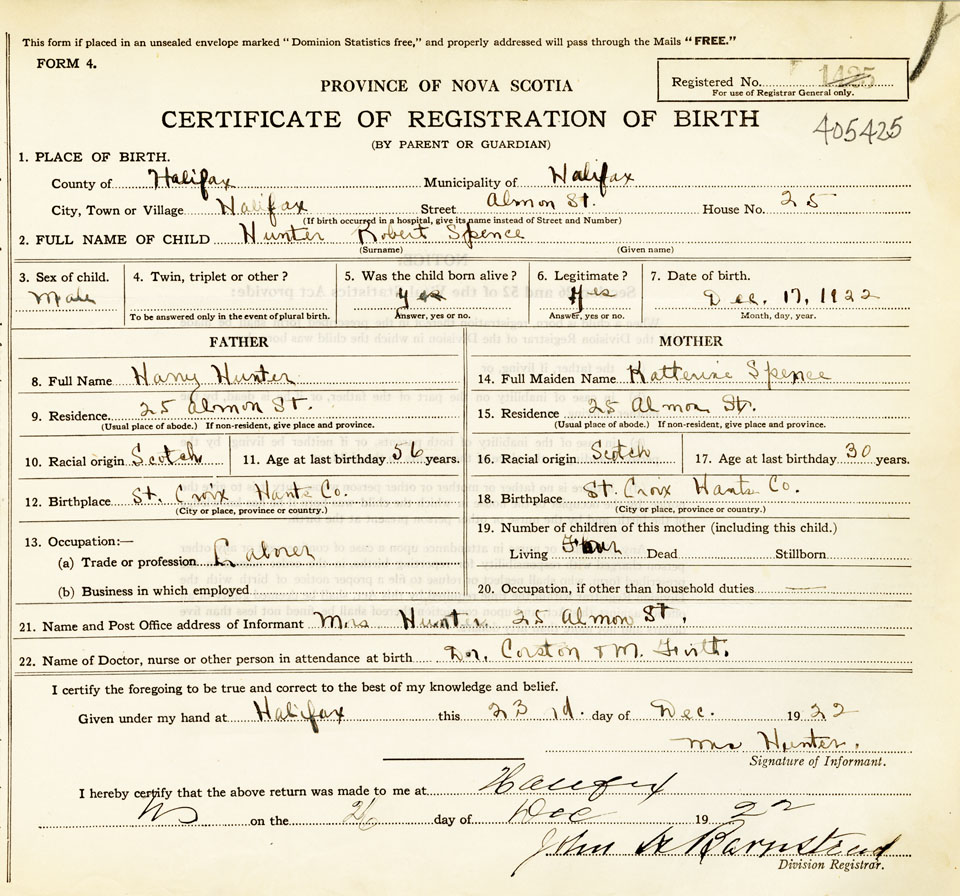 This form if placed in an unsealed envelope marked "Dominion Statistics free," and properly addressed will pass through the Mails "FREE."
FORM 4.
PROVINCE OF NOVA SCOTIA
Registered No. 1425
For use of Registrar General only.
CERTIFICATE OF REGISTRATION OF BIRTH
405425
(BY PARENT OR GUARDIAN)
1. PLACE OF BIRTH.
County of Halifax Municipality of Halifax
City, Town or Village Halifax Street Almon St. House No. 25
(If birth occurred in a hospital, give its name instead of Street and Number)
2. FULL NAME OF CHILD Hunter Robert Spence
(Surname) (Given name)
3. Sex of child. 4. Twin, triplet or other? 5. Was the child born alive? 6. Legitimate? 7. Date of birth.
Male Yes Yes Dec. 17, 1922
To be answered only in the event of plural birth. Answer, yes or no. Answer, yes or no. Month, day, year.
FATHER MOTHER
8. Full Name Harry Hunter 14. Full Maiden Name Katterine Spence
9. Residence. 25 Almon St. 15. Residence 25 Almon St.
(Usual place of abode.) If non-resident, give place and province. (Usual place of abode.) If non-resident, give place and province.
10. Racial origin Scotch 11. Age at last birthday 56 years. 16. Racial origin Scotch 17. Age at last birthday 30 years.
12. Birthplace St. Croix Hants Co. 18. Birthplace St. Croix Hants Co.
(City or place, province or country.) (City or place, province or country.)
13. Occupation:— 19. Number of children of this mother (including this child.)
(a) Trade or profession Laborer Living Four Dead Stillborn
(b) Business in which employed 20. Occupation, if other than household duties —
21. Name and Post Office address of Informant Mrs Hunter. 25 Almon St.
22. Name of Doctor, nurse or other person in attendance at birth Dr. Corston & M. Firth.
I certify the foregoing to be true and correct to the best of my knowledge and belief.
Given under my hand at Halifax this 23rd. day of Dec. 1922
Mrs Hunter.
Signature of Informant.
I hereby certify that the above return was made to me at Halifax
NS on the 26 day of Dec 1922
John A Barnstead
Division Registrar.